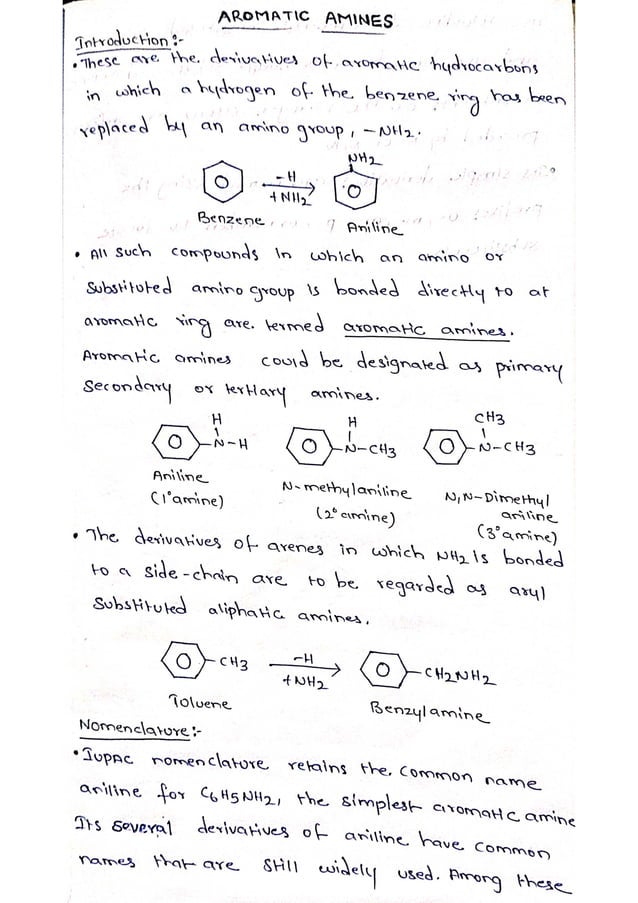 AROMATIC AMINES
Introduction:-
• These are the derivatives of aromatic hydrocarbons
in which a hydrogen of the benzene ring has been
replaced by an amino group, -NH2.
NH2
-H
+NH2
Benzene
Aniline
• All such compounds in which an amino or
substituted amino group is bonded directly to at
aromatic ring are. termed aromatic amines.
Aromatic amines could be designated as primary
secondary or tertiary amines.
H H CH3
N-H N-CH3 N-CH3
Aniline
(1° amine)
N-methylaniline
(2° amine)
N,N-Dimethyl
aniline
(3° amine)
• The derivatives of arenes in which NH2 is bonded
to a side-chain are to be regarded as aryl
substituted aliphatic amines.
CH3 -H CH2NH2
+NH2
Toluene
Benzylamine
Nomenclature:-
• IUPAC nomenclature retains the. common name
aniline for C6H5NH2, the simplest aromatic amine
Its several derivatives of aniline have common
names that are still widely used. Among these